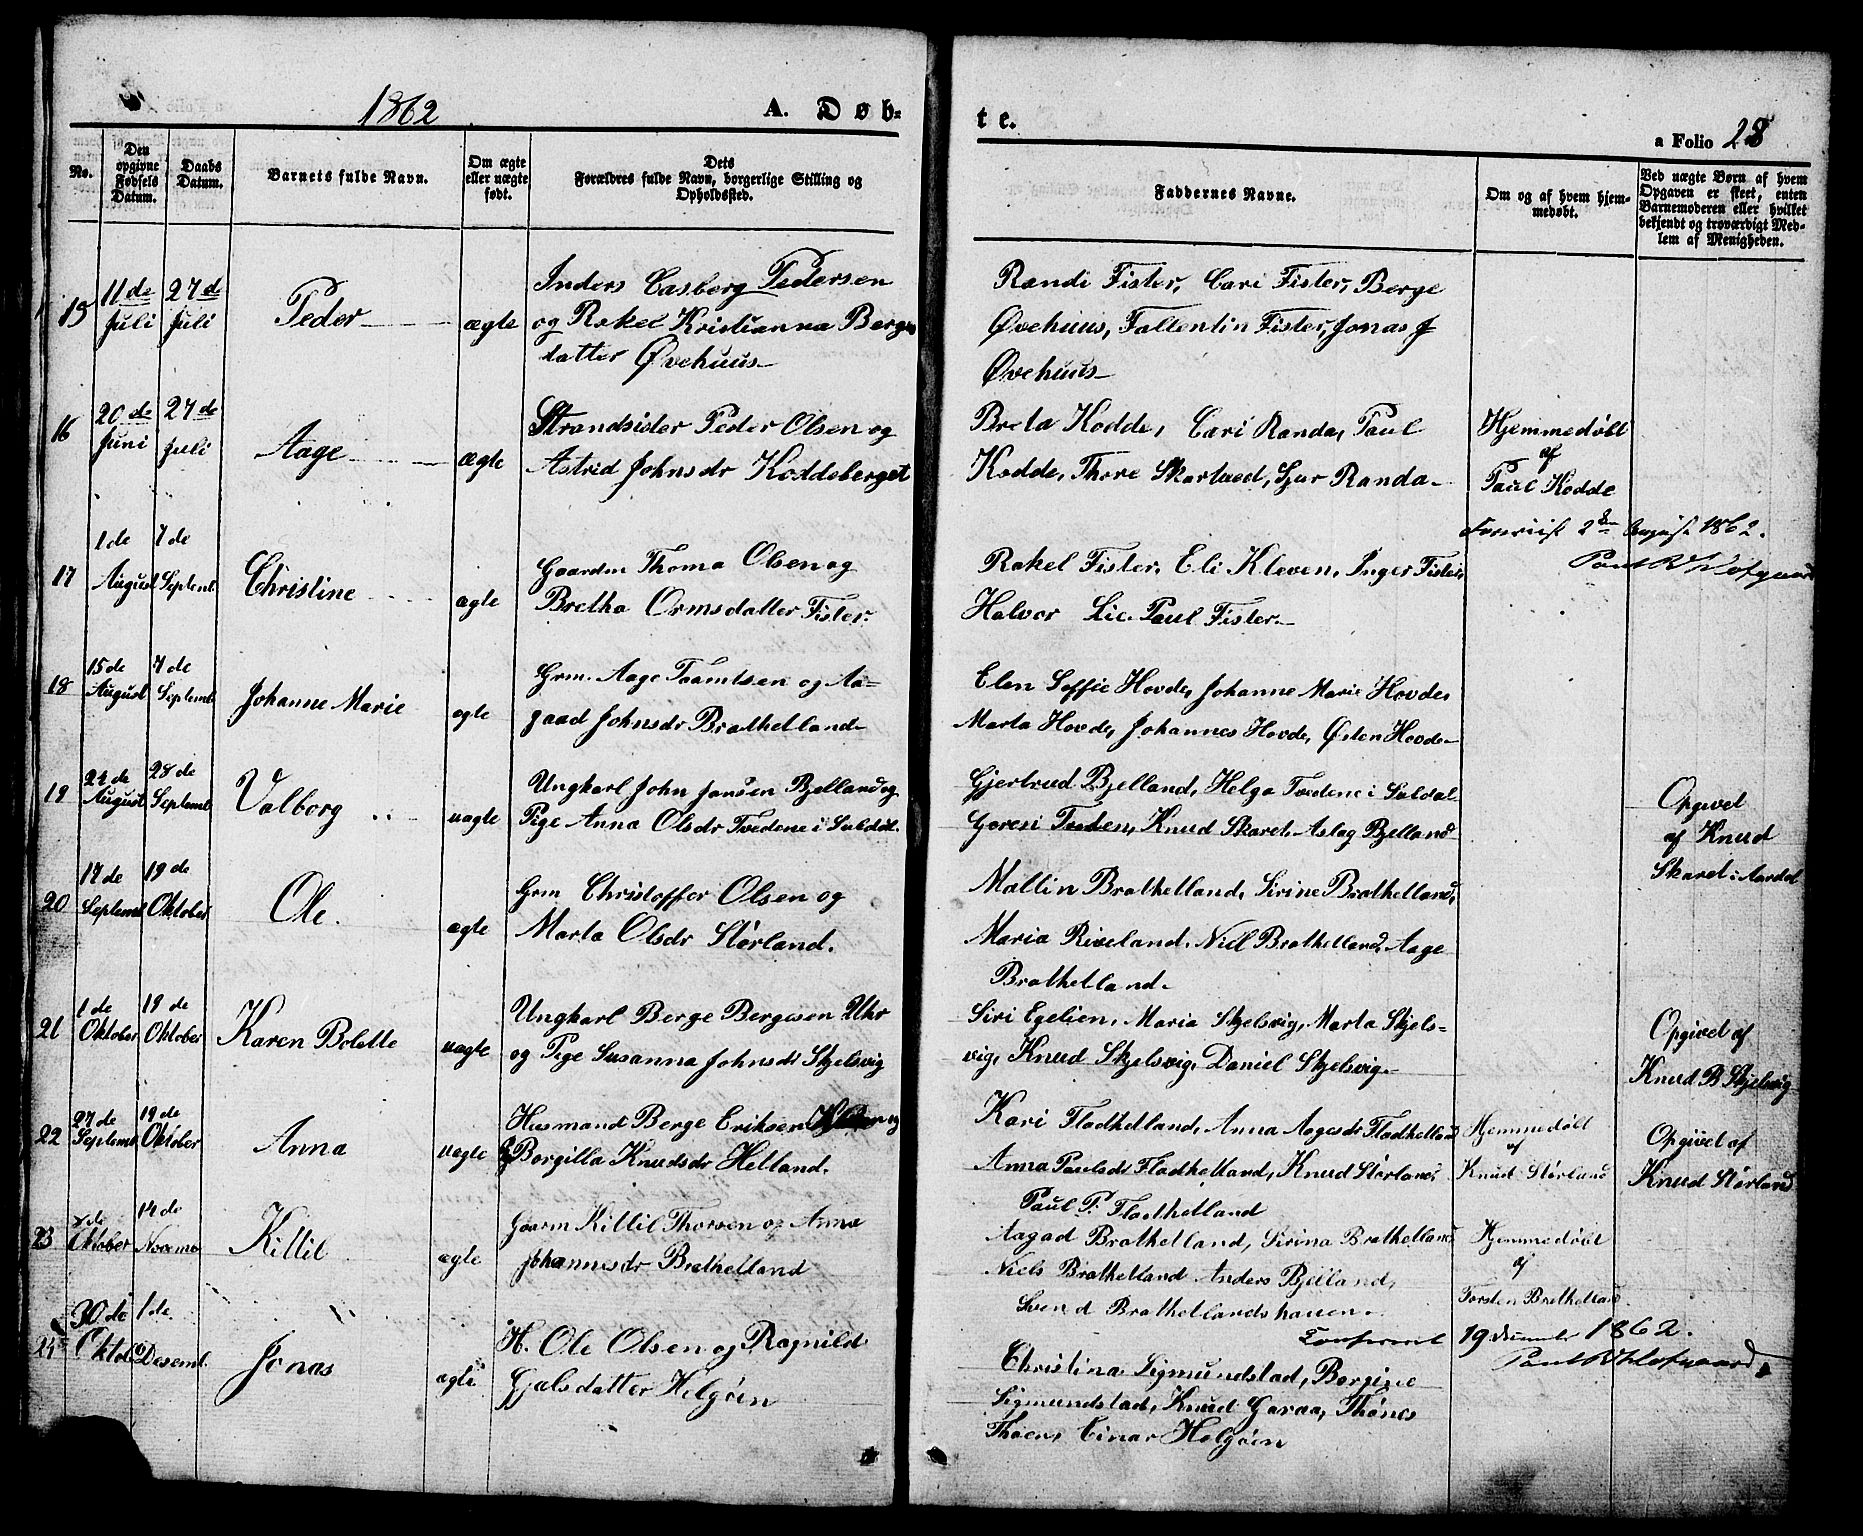 1862
A. Døb=
te.
a Folio 28
No.
Den opgivne Fødsels Datum.
Daabs Datum.
Barnets fulde Navn.
Om ægte eller uægte født.
Dets
Forældres fulde Navn, borgerlige Stilling og
Opholdssted.
Faddernes Navne.
Om og af hvem hjem-
medøbt.
Ved uægte Børn af hvem
Opgaven er skeet, enten
Barnemoderen eller hvilket
bekjendt og troværdigt Med-
lem af Menigheden.
15 11de Juli 27de Juli Peder ægte
Casberg Pedersen
og Rakel Kristianna Berges
datter Øvehuus
Randi Fister, Cari Fister, Berge
Øvehuus, Fallentin Fister, Jonas J
Øvehuus
16 20de Juni 27de Juli Aage ægte
Strandsider Peder Olsen og
Astrid Johnsdr Koddeberget
Breta Kodde, Cari Randa, Paul
Kodde, Thore Skartved, Sjur Randa
Hjemmedøbt
af
Paul Kodde
2den August 1862.
17 1de August 7de Septemb Christine ægte
Gaardm Thoma Olsen og
Bretha Ormsdatter Fister
Rakel Fister, Eli Kleven, Inger Fister,
Halvor Lie Paul Fister
18 15de August 7de Septemb Johanne Marie ægte
Grm. Aage Taamtsen og Aa=
gaad Johnsdr Brathetland
Elen Soffie Hovde, Johanne Marie Hovde,
Marta Hovde, Johannes Hovde, Østen Hovde
19 24de August 28de Septemb Valborg uægte
Ungkarl John Jansen Bjelland og
Pige Anna Olsdr Tvedene i Suldal.
Gjertrud Bjelland, Helga Tvedene i Suldal
Goreri Tveden, Knud Skaret, Aslag Bjelland
Opgivet
af Knud
Skaret i Aardal
20 17de Septemb 19de Oktober Ole. ægte
Grm Christoffer Olsen og
Marta Olsdr Størland.
Mallin Brathetland, Sirine Brathetland,
Maria Riveland, Niel Brathetland, Aage
Brathetland.
21 1de Oktober 19de Oktober Karen Bolette uægte
Ungkarl Berge Bergesen Uhr
og Pige Susanna Johnsdr Skjelsvig
Siri Egelien, Maria Skjelsvig, Marta Skjels=
vig, Knud Skjelsvig, Daniel Skjelsvig
Opgivet af
Knud B Skjelsvig
22 27de Septemb 19de Oktober Anna uægte
Husmand Berge Eriksen
Borgilla Knudsdr Helland.
Kari Fladhetland, Anna Aagesdr Fladhetland
Anna Paulsdr Fladhetland, Knud Størland,
Paul P. Fladhetland
Hjemmedøbt
af
Knud Størland
Opgivet af
Knud Størland
23 Oktober 14de Novemb Killil ægte
Gaarm Killil Thorsen og Anna
Johannesdr Brathetland
Aagad Brathetland, Sirina Brathetland
Niels Brathetland Anders Bjelland,
Svend Brathetlandshauen
Hjemmedøbt
af
Torsten Brathetland.
19 1862.
24 30de Oktob 1de Desemb. Jonas ægte
H. Ole Olsen og Ragnild
Gjalsdatter Helgøen
Christina Sigmundstad, Borgine
Sigmundstad, Knud Garaa, Thønes
Thoen, Einar Helgøen